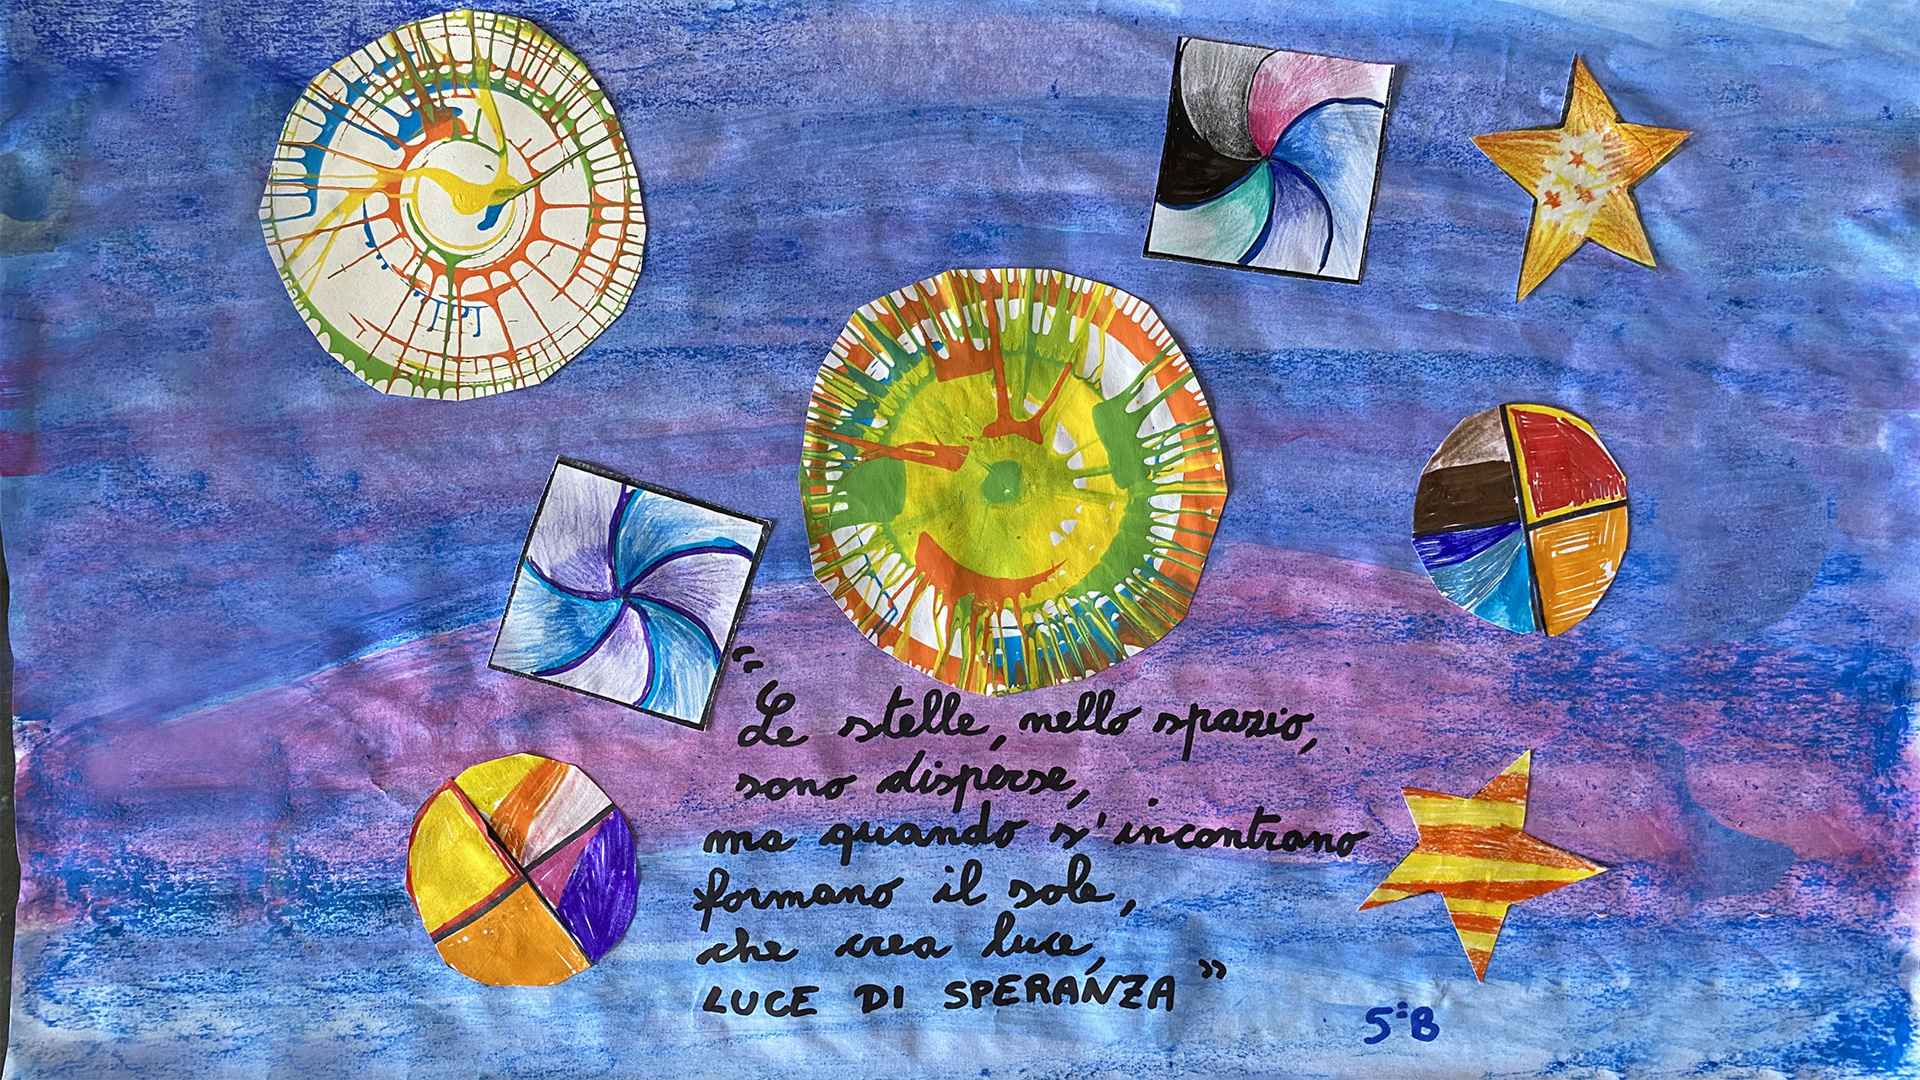 "Le stelle, nello spazio,
sono disperse,
ma quando s'incontrano
formano il sole,
che crea luce,
LUCE DI SPERANZA"
5ªB